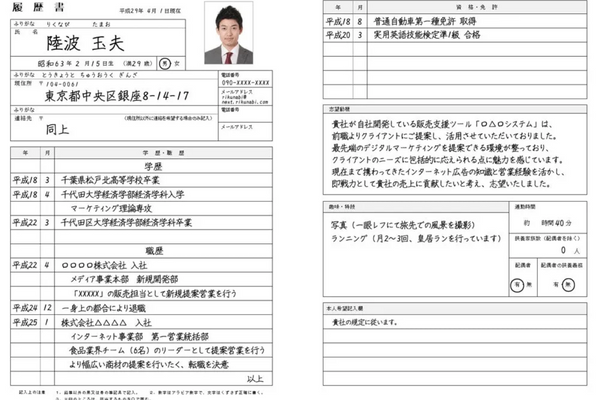 履歴書
平成29年 4月 1日現在
ふりがな りくなび たまお
氏名
陸波 玉夫
昭和63年 2月15日生 (満29歳) 男・女
ふりがな とうきょうと ちゅうおうく ぎんざ
現住所 〒104-0061
東京都中央区銀座8-14-17
電話番号
090-XXXX-XXXX
メールアドレス
rikunabi@
next.rikunabi.com
ふりがな
連絡先 〒 (現住所以外に連絡を希望する場合のみ記入)
同上
電話番号
メールアドレス
年 月 学歴・職歴
学歴
平成18 3 千葉県松戸北高等学校卒業
平成18 4 千代田大学経済学部経済学科入学
マーケティング理論専攻
平成22 3 千代田区大学経済学部経済学科卒業
職歴
平成22 4 〇〇〇〇株式会社 入社
メディア事業本部 新規開発部
「XXXXX」の販売担当として新規提案営業を行う
平成24 12 一身上の都合により退職
平成25 1 株式会社△△△△ 入社
インターネット事業部 第一営業統括部
食品業界チーム(6名)のリーダーとして提案営業を行う
より幅広い商材の提案を行いたく、転職を決意
以上
記入上の注意
年 月 資格・免許
平成18 8 普通自動車第一種免許 取得
平成20 3 実用英語技能検定準1級 合格
志望動機
貴社が自社開発している販売支援ツール「ロ△ロシステム」は、
前職よりクライアントにご提案し、活用させていただいておりました。
最先端のデジタルマーケティングを提案できる環境が整っており、
クライアントのニーズに包括的に応えられる点に魅力を感じています。
現在まで携わってきたインターネット広告の知識と営業経験を活かし、
即戦力として貴社の売上に貢献したいと考え、志望いたしました。
趣味・特技
写真(一眼レフにて旅先での風景を撮影)
ランニング(月2~3回、皇居ランを行っています)
通勤時間
約 時間40分
扶養家族数(配偶者を除く)
0人
配偶者
有・無
配偶者の扶養義務
有・無
本人希望記入欄
貴社の規定に従います。